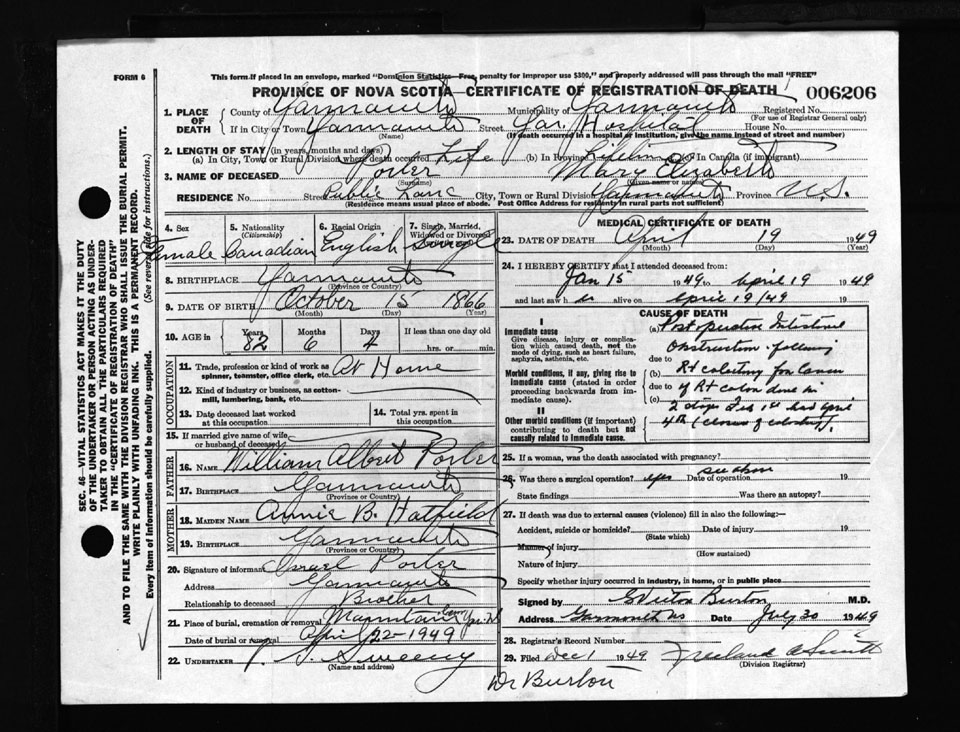 FORM 6
This form if placed in an envelope, marked "Dominion Statistics—Free, penalty for improper use $300," and properly addressed will pass through the mail "FREE"
PROVINCE OF NOVA SCOTIA—CERTIFICATE OF REGISTRATION OF DEATH
006206
SEC. 46—VITAL STATISTICS ACT MAKES IT THE DUTY
OF THE UNDERTAKER OR PERSON ACTING AS UNDER-
TAKER TO OBTAIN ALL THE PARTICULARS REQUIRED
IN THE "CERTIFICATE OF REGISTRATION OF DEATH"
AND TO FILE THE SAME WITH THE DIVISION REGISTRAR WHO SHALL ISSUE THE BURIAL PERMIT.
WRITE PLAINLY WITH UNFADING INK. THIS IS A PERMANENT RECORD.
Every item of information should be carefully supplied. (See reverse side for instructions.)
1. PLACE OF DEATH County of Yarmouth Municipality of Yarmouth Registered No.
(For use of Registrar General only)
If in City or Town Yarmouth Street Yar. Hospital House No.
(Name) (If death occurred in a hospital or institution, give the name instead of street and number)
2. LENGTH OF STAY (in years, months and days)
(a) In City, Town or Rural Division where death occurred Life (b) In Province Lifetime (c) In Canada (if immigrant)
3. NAME OF DECEASED Porter Mary Elizabeth
(Surname) (Given name or names)
RESIDENCE No. Street Public Lane City, Town or Rural Division Yarmouth Province N.S.
(Residence means usual place of abode. Post Office Address for residents in rural parts not sufficient)
4. Sex Female
5. Nationality (Citizenship) Canadian
6. Racial Origin English
7. Single, Married, Widowed or Divorced Single
8. BIRTHPLACE Yarmouth
(Province or Country)
9. DATE OF BIRTH October 15 1866
(Month) (Day) (Year)
10. AGE in Years Months Days If less than one day old
82 6 4 hrs. or min.
OCCUPATION
11. Trade, profession or kind of work as spinner, teamster, office clerk, etc. At Home
12. Kind of industry or business, as cotton-mill, lumbering, bank, etc.
13. Date deceased last worked at this occupation
14. Total yrs. spent in this occupation
15. If married give name of wife or husband of deceased
FATHER
16. NAME William Albert Porter
17. BIRTHPLACE Yarmouth
(Province or Country)
MOTHER
18. MAIDEN NAME Annie B. Hatfield
19. BIRTHPLACE Yarmouth
(Province or Country)
20. Signature of informant Israel Porter
Address Yarmouth
Relationship to deceased Brother
21. Place of burial, cremation or removal Mountain Cem Yar. N.S.
Date of burial or removal April 22–1949
22. UNDERTAKER V. S. Sweeny
(Name and address)
MEDICAL CERTIFICATE OF DEATH
23. DATE OF DEATH April 19 1949
(Month) (Day)
24. I HEREBY CERTIFY that I attended deceased from:
Jan 15 1949 to April 19 1949
and last saw h er alive on April 19/49 19
CAUSE OF DEATH
I
Immediate cause
Give disease, injury or complication which caused death, not the mode of dying, such as heart failure, asphyxia, asthenia, etc.
Morbid conditions, if any, giving rise to immediate cause (stated in order proceeding backwards from immediate cause).
II
Other morbid conditions (if important) contributing to death but not causally related to immediate cause.
(a) Post operative Intestinal
Obstruction - following
due to
(b) Rt colostomy for Cancer
due to
(c) of Rt colon done in
2 stages Feb 1st and April
4th (closure of colostomy).
25. If a woman, was the death associated with pregnancy?
26. Was there a surgical operation? yes Date of operation see above 19
State findings Was there an autopsy?
27. If death was due to external causes (violence) fill in also the following:—
Accident, suicide or homicide? Date of injury 19
(State which)
Manner of injury
(How sustained)
Nature of injury
Specify whether injury occurred in industry, in home, or in public place
Signed by G Victor Burton M.D.
Address Yarmouth NS Date July 30 1949
28. Registrar's Record Number
29. Filed Dec 1 1949 Freeland A Smith
(Division Registrar)
Dr Burton